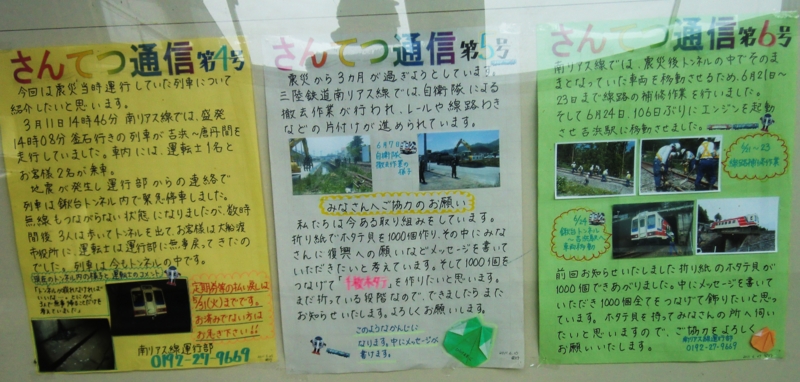 さんてつ通信 第4号
今回は震災当時運行していた列車について
紹介したいと思います。
3月11日14時46分 南リアス線では、盛発
14時08分 釜石行きの列車が吉浜〜唐丹間を
走行していました。車内には、運転士1名と
お客様2名が乗車。
地震が発生し運行部からの連絡で
列車は鍬台トンネル内で緊急停車しました。
無線もつながらない状態になりましたが、数時
間後 3人は歩いてトンネルを出て、お客様は大船渡
市役所に、運転士は運行部に無事戻ってきたの
でした。列車は今もトンネルの中です。
現在のトンネル内の様子と運転士のコメント
定期券等の払い戻しは
5/31(火)までです。
お済みでない方は
お急ぎ下さい!!
南リアス線運行部
0192-27-9669
さんてつ通信 第5号
震災から3カ月が過ぎようとしています。
三陸鉄道南リアス線では、自衛隊による
撤去作業が行われ、レールや線路わき
などの片付けが進められています。
6月7日
自衛隊
撤去作業の
様子
みなさんへご協力のお願い
私たちは今ある取り組みをしています。
折り紙でホタテ貝を1000個作り、その中にみな
さんに復興への願いなどメッセージを書いて
いただきたいと考えています。そして1000個を
つなげて「千枚ホタテ」を作りたいと思います。
まだ折っている段階なので、できましたらまた
お知らせいたします。よろしくお願いします。
このようなかんじに
なります。中にメッセージが
書けます。
さんてつ通信 第6号
南リアス線では、震災後トンネルの中でそのま
まとなっていた車両を移動させるため、6月21日〜
23日まで線路の補修作業を行いました。
そして6月24日、106日ぶりにエンジンを起動
させ吉浜駅に移動させました。
6/21〜23
線路補修作業
6/24
鍬台トンネル
〜吉浜駅へ
車両移動
前回お知らせいたしました折り紙のホタテ貝が
1000個できあがりました。中にメッセージを書いて
いただき1000個全てをつなげて飾りたいと思っ
ています。ホタテ貝を持ってみなさんの所へ伺い
たいと思いますので、ご協力をよろしく
お願いいたします。
南リアス線運行部
0192-27-9669